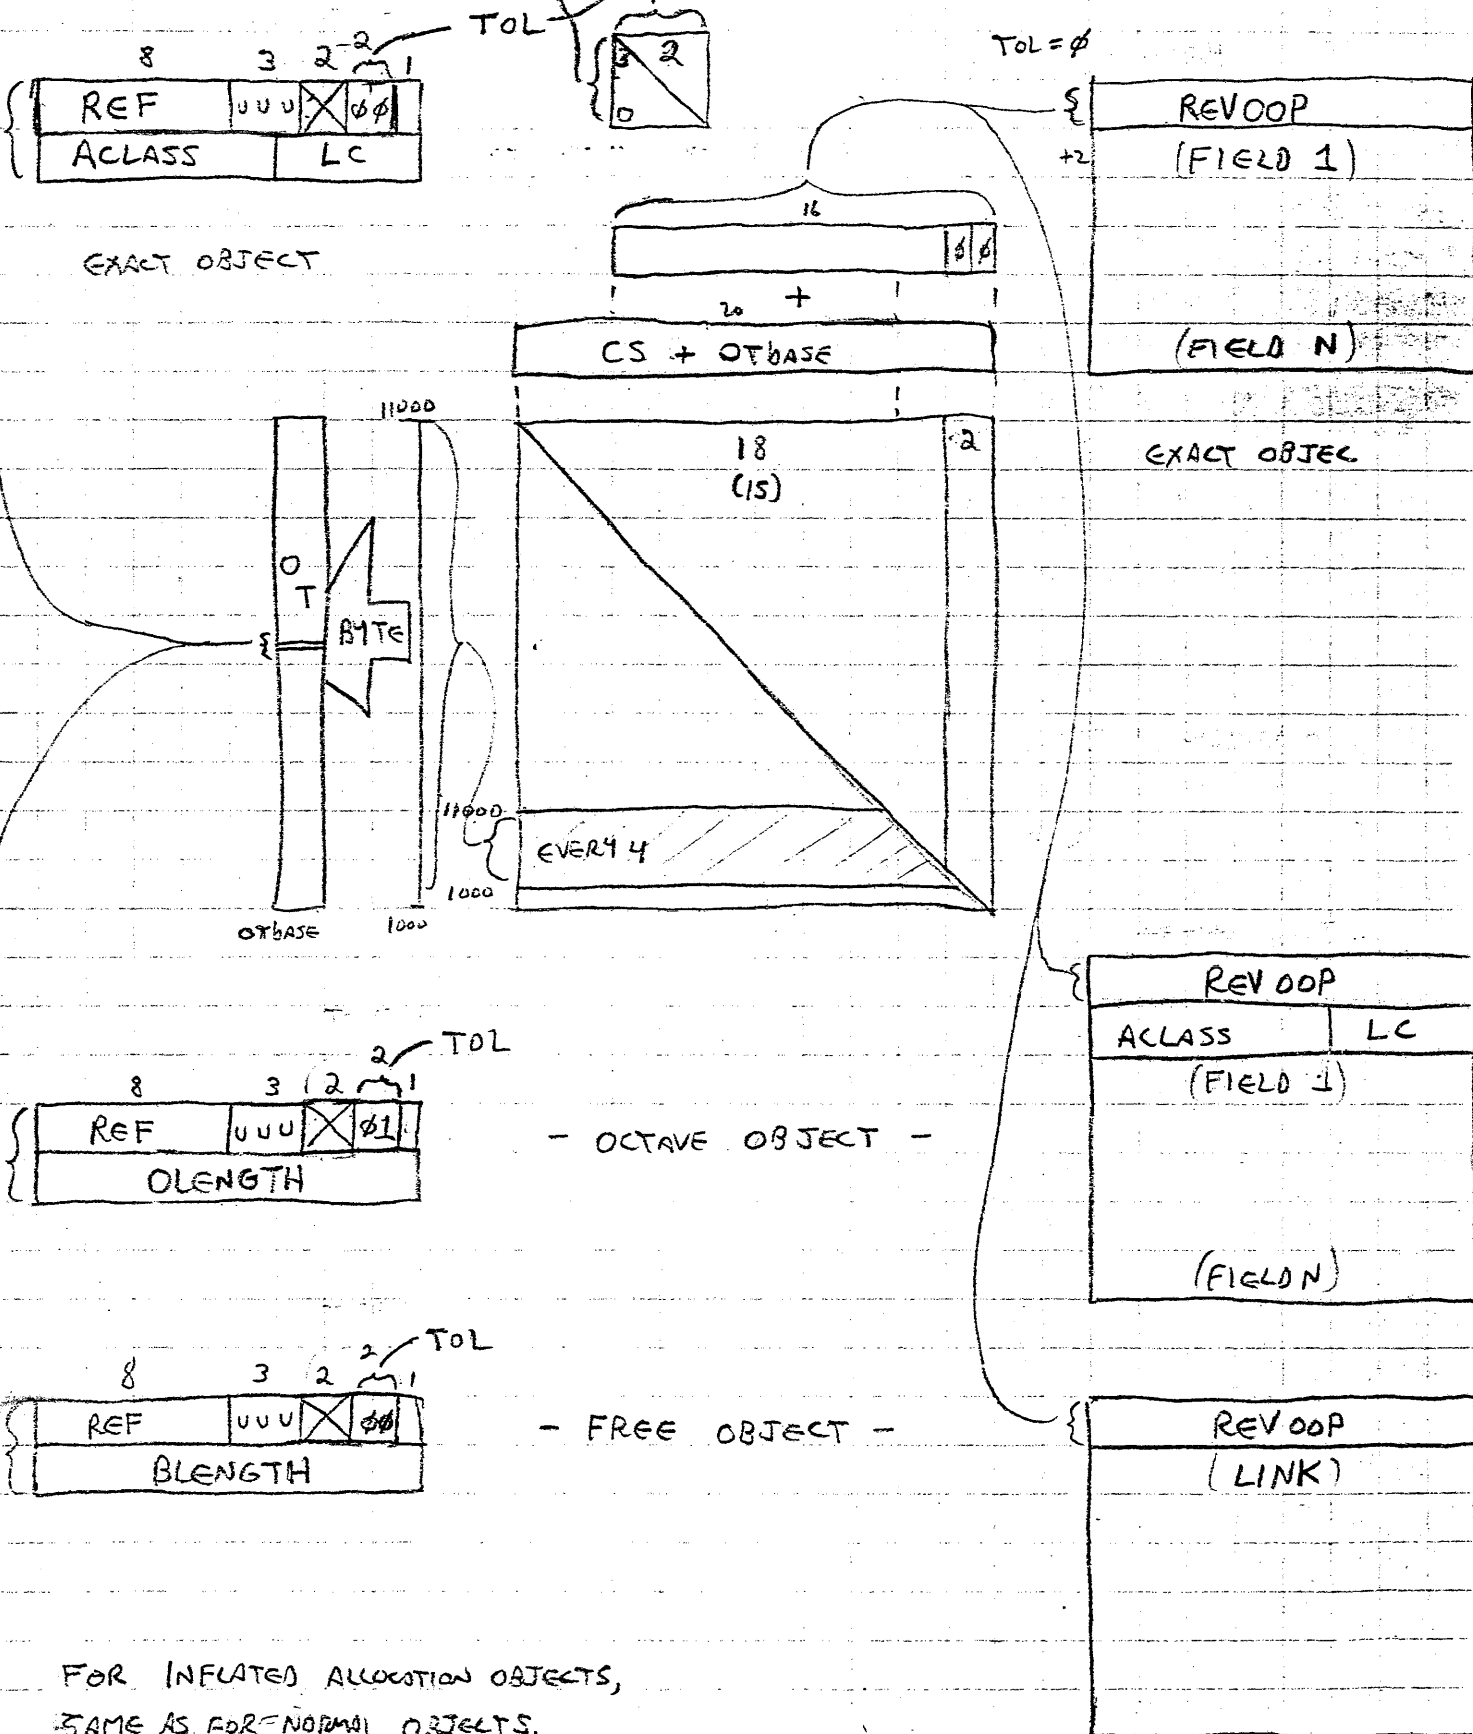 TOL
8 3 2 2 1
REF U U U ØØ
ACLASS LC
EXACT OBJECT
2
0
TOL=Ø
REVOOP
+2 (FIELD 1)
(FIELD N)
EXACT OBJEC
16
Ø Ø
+
20
CS + OTBASE
18
(15)
2
11000
OT
BYTE
11000
EVERY 4
1000
OTBASE
1000
REVOOP
ACLASS LC
(FIELD 1)
(FIELD N)
TOL
8 3 2 2 1
REF U U U Ø1
OLENGTH
- OCTAVE OBJECT -
TOL
8 3 2 2 1
REF U U U ØØ
BLENGTH
- FREE OBJECT -
REVOOP
(LINK)
FOR INFLATED ALLOCATION OBJECTS,
SAME AS FOR NORMAL OBJECTS.